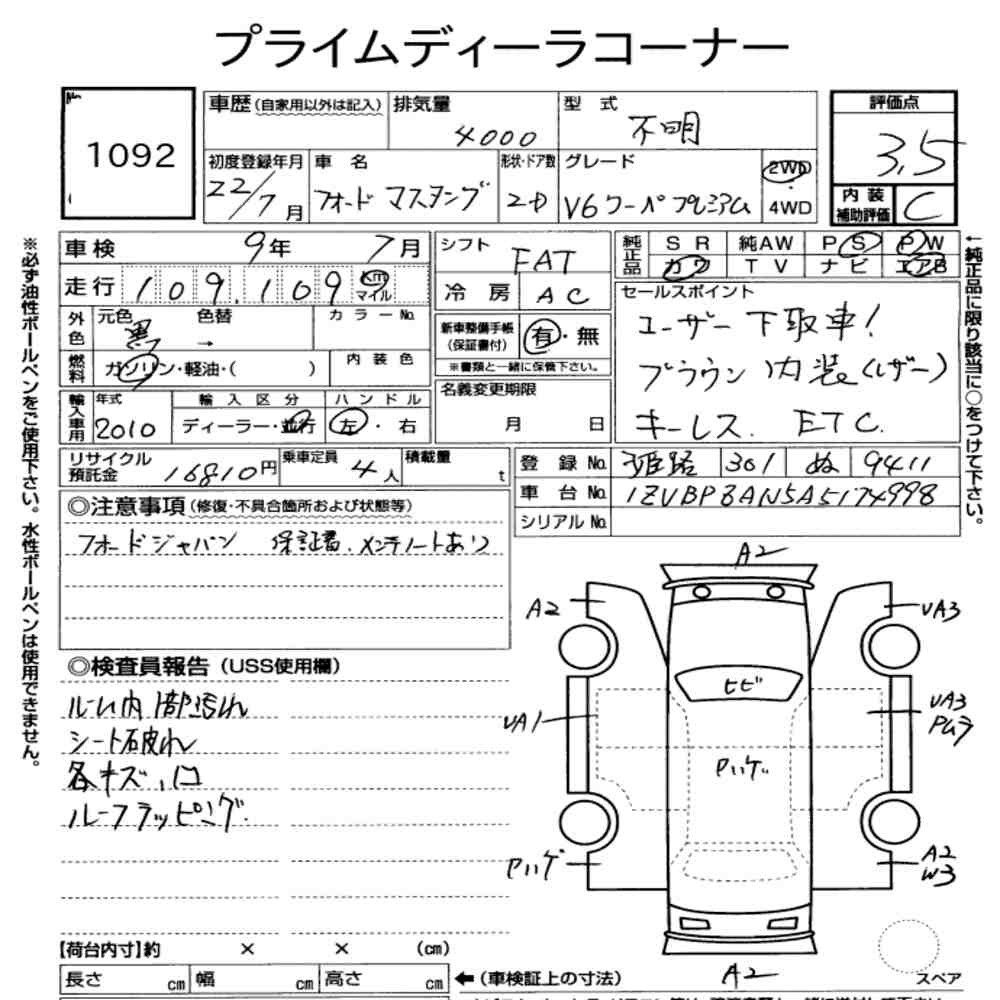 プライムディーラコーナー
No.
1092
車歴（自家用以外は記入）
排気量
4000
型 式
不明
評価点
3.5
初度登録年月
22/7 月
車 名
フォード マスタング
形状・ドア数
2D
グレード
V6 クーペ プレミアム
2WD
・
4WD
内 装
補助評価
C
※必ず油性ボールペンをご使用下さい。水性ボールペンは使用できません。
車検 9年 7月
走行 109,109 km
マイル
外色 元色 黒 色替 → カラーNo.
燃料 ガソリン・軽油・( )
内 装 色
輸入車用 年式 2010
輸 入 区 分
ディーラー・並行
ハ ン ド ル
左・右
シフト FAT
冷 房 AC
新車整備手帳
（保証書付）
有・無
※書類と一緒に保管下さい。
名義変更期限
月 日
純正品 S R 純AW P S P W
カワ T V ナ ビ エアB
←純正品に限り該当に○をつけて下さい。
セールスポイント
ユーザー下取車！
ブラウン内装（レザー）
キーレス. ETC.
リサイクル
預託金 16810円
乗車定員 4人
積載量 t
登 録 No. 姫路 301 ぬ 9411
車 台 No. 1ZVBP8AN5A5174998
シリアル No.
◎注意事項（修復・不具合箇所および状態等）
フォードジャパン 保証書、メンテノートあり
◎検査員報告（USS使用欄）
ルーム内 1部汚れ
シート破れ
各キズ、凹
ルーフラッピング.
A2
A2
UA3
ヒビ
UA1
UA3
Pハゲ
Pハゲ
A2
W3
A2
スペア
【荷台内寸】約 × × （cm）
長さ cm 幅 cm 高さ cm
←（車検証上の寸法）